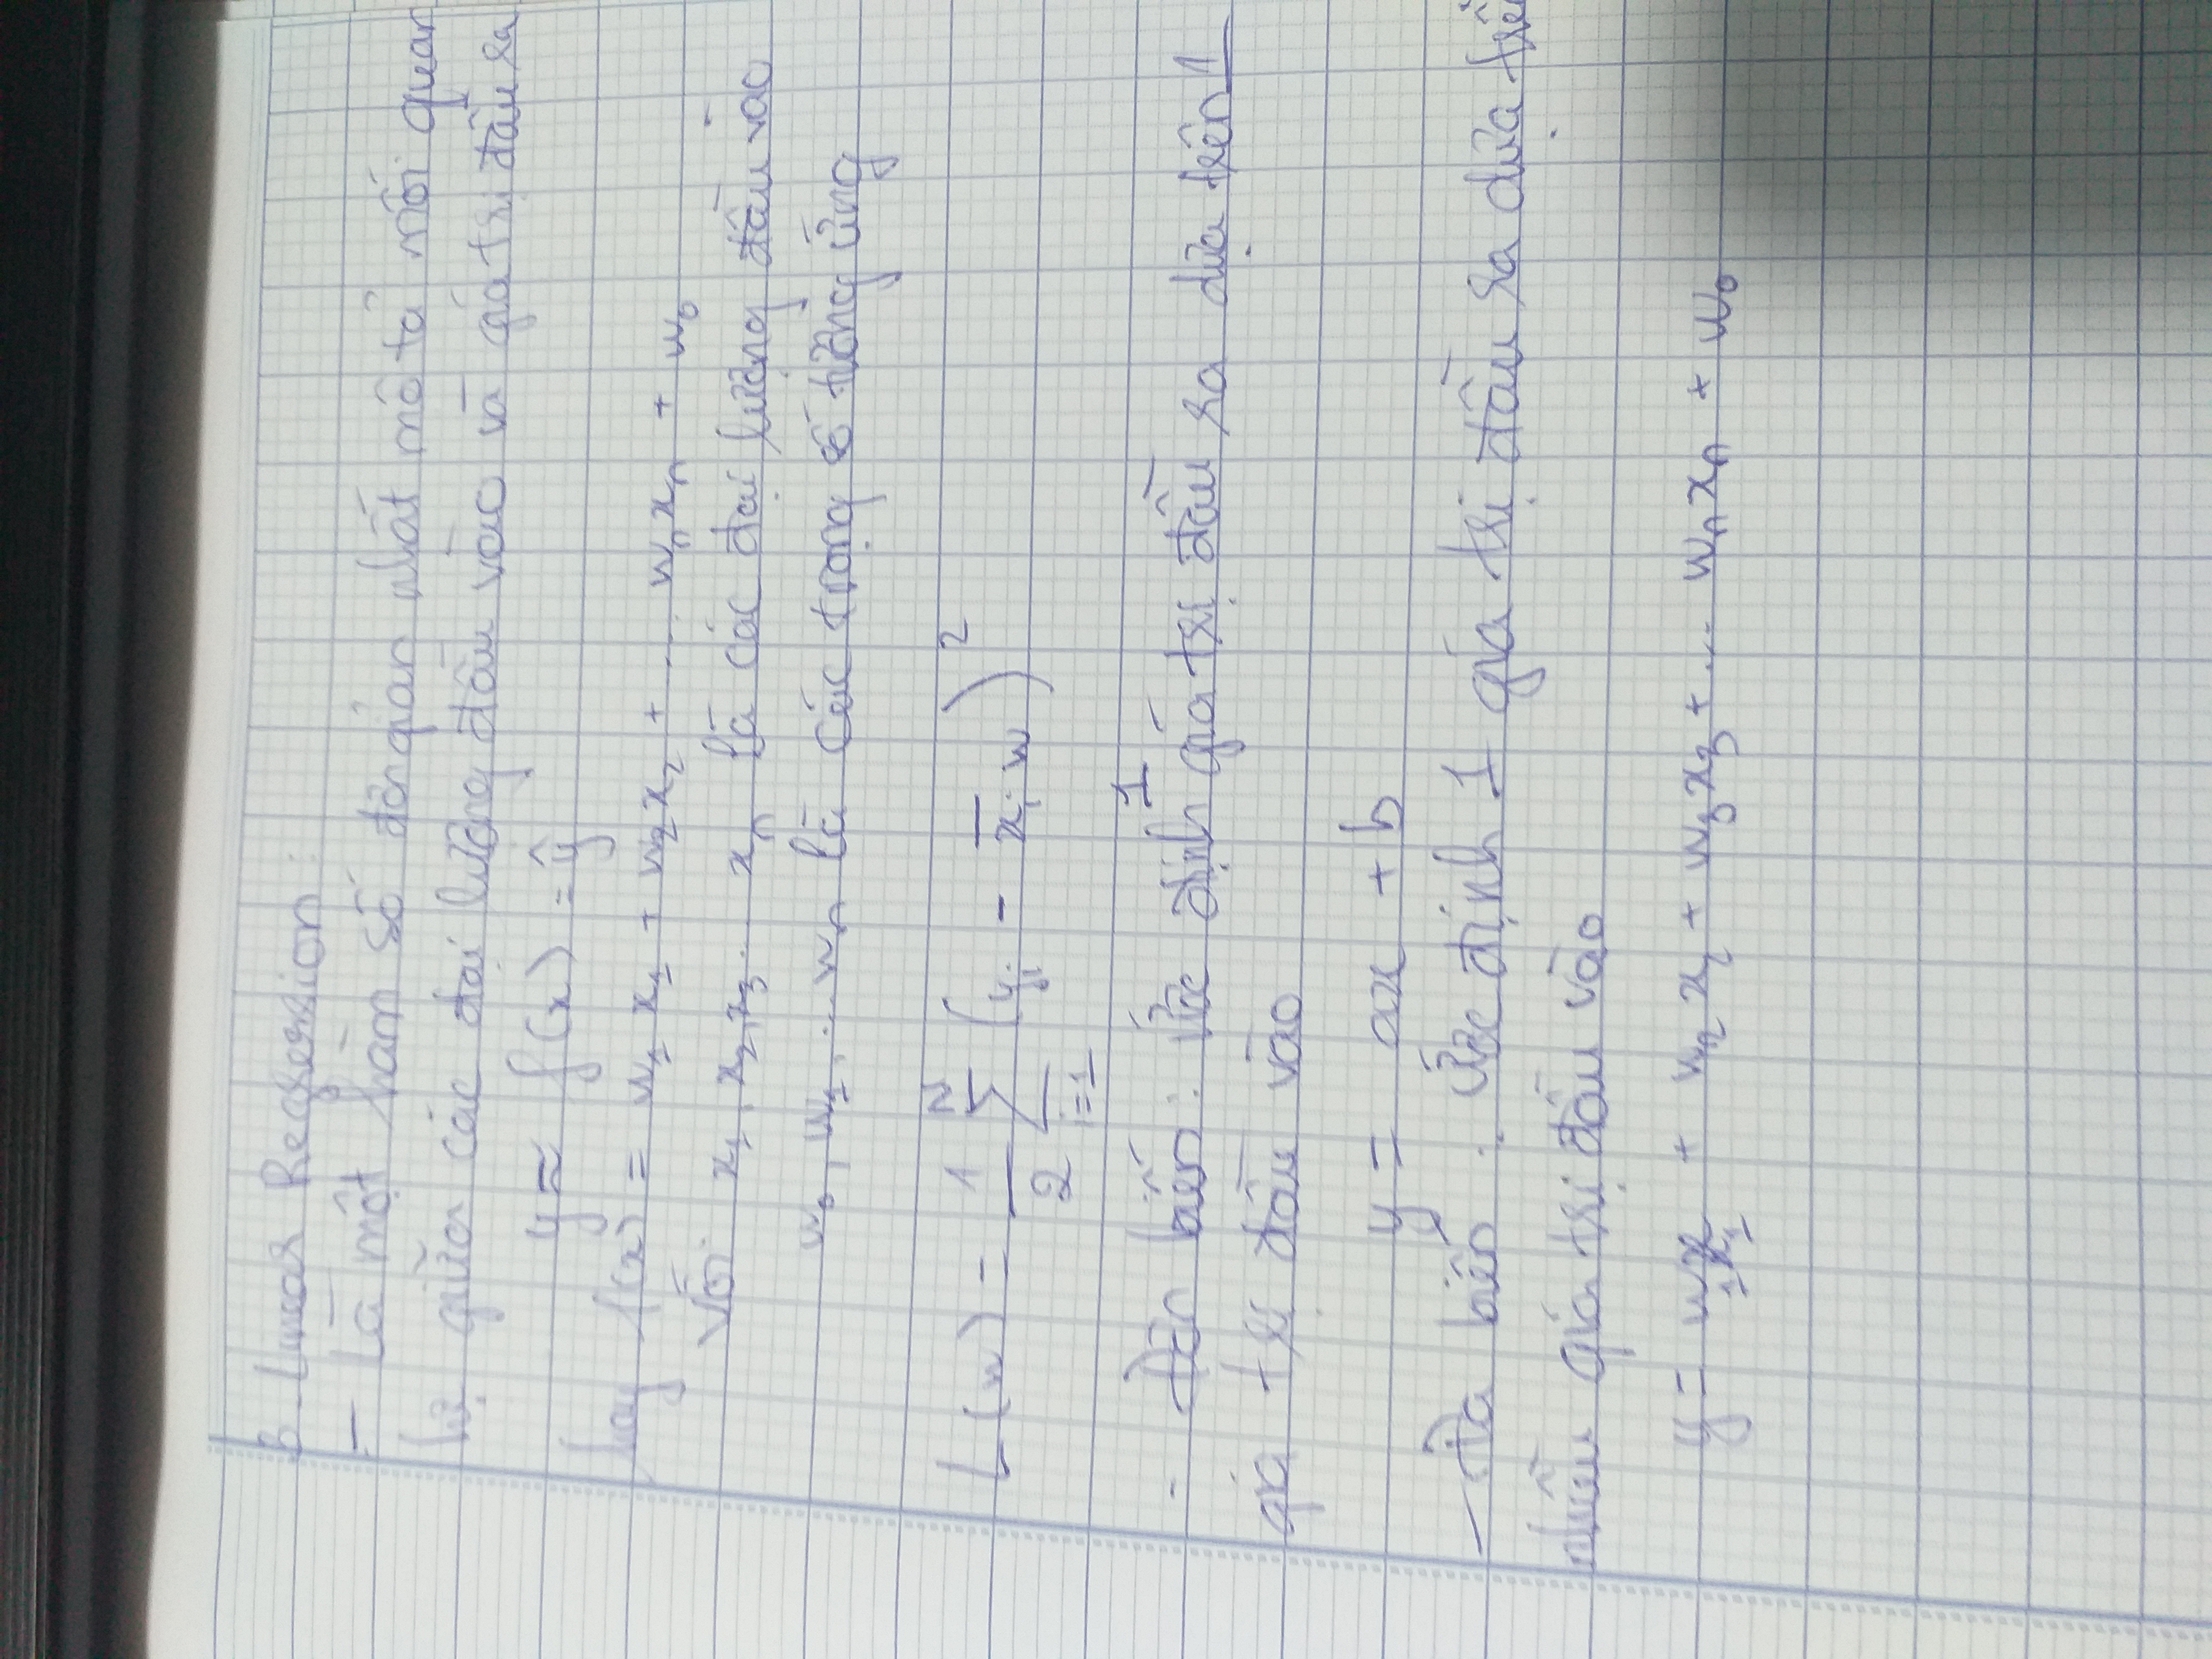 3. Linear Regression:
- Là một hàm số đơn giản nhất mô tả mối quan
hệ giữa các đại lượng đầu vào và giá trị đầu ra
y ≈ f(x) = ŷ
hay f(x) = w₁ x₁ + w₂ x₂ + ... wₙ xₙ + w₀
Với x₁, x₂, x₃ ... xₙ là các đại lượng đầu vào
w₀, w₁, ... wₙ là các trọng số tương ứng
L(w) = 1/2 ∑ᵢ₌₁ᴺ (yᵢ - x̅ᵢ w)²
- Đơn biến: Ước định 1 giá trị đầu ra dựa trên 1
giá trị đầu vào
y = ax + b
- Đa biến: Ước định 1 giá trị đầu ra dựa trên
nhiều giá trị đầu vào
y = w₁x₁ + w₂ x₂ + w₃ x₃ + ... wₙ xₙ + w₀